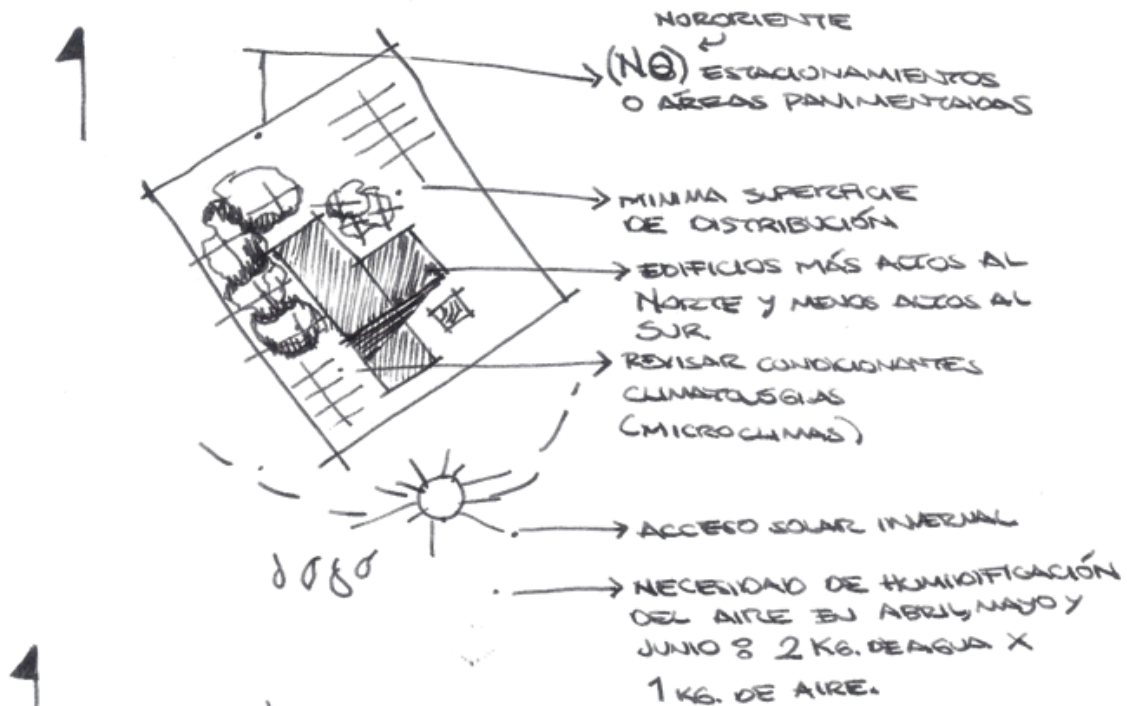 NORORIENTE
(NO) ESTACIONAMIENTOS
O ÁREAS PAVIMENTADAS
MINIMA SUPERFICIE
DE DISTRIBUCIÓN
EDIFICIOS MÁS ALTOS AL
NORTE Y MENOS ALTOS AL
SUR.
REVISAR CONDICIONANTES
CLIMATOLÓGICAS
(MICROCLIMAS)
ACCESO SOLAR INVERNAL
NECESIDAD DE HUMIDIFICACIÓN
DEL AIRE EN ABRIL, MAYO Y
JUNIO : 2 KG. DE AGUA X
1 KG. DE AIRE.